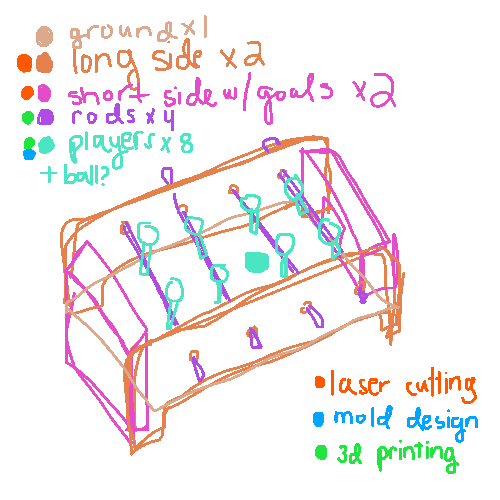 ground x1
long side x2
short side w/ goals x2
rods x4
players x8
+ ball?
laser cutting
mold design
3d printing